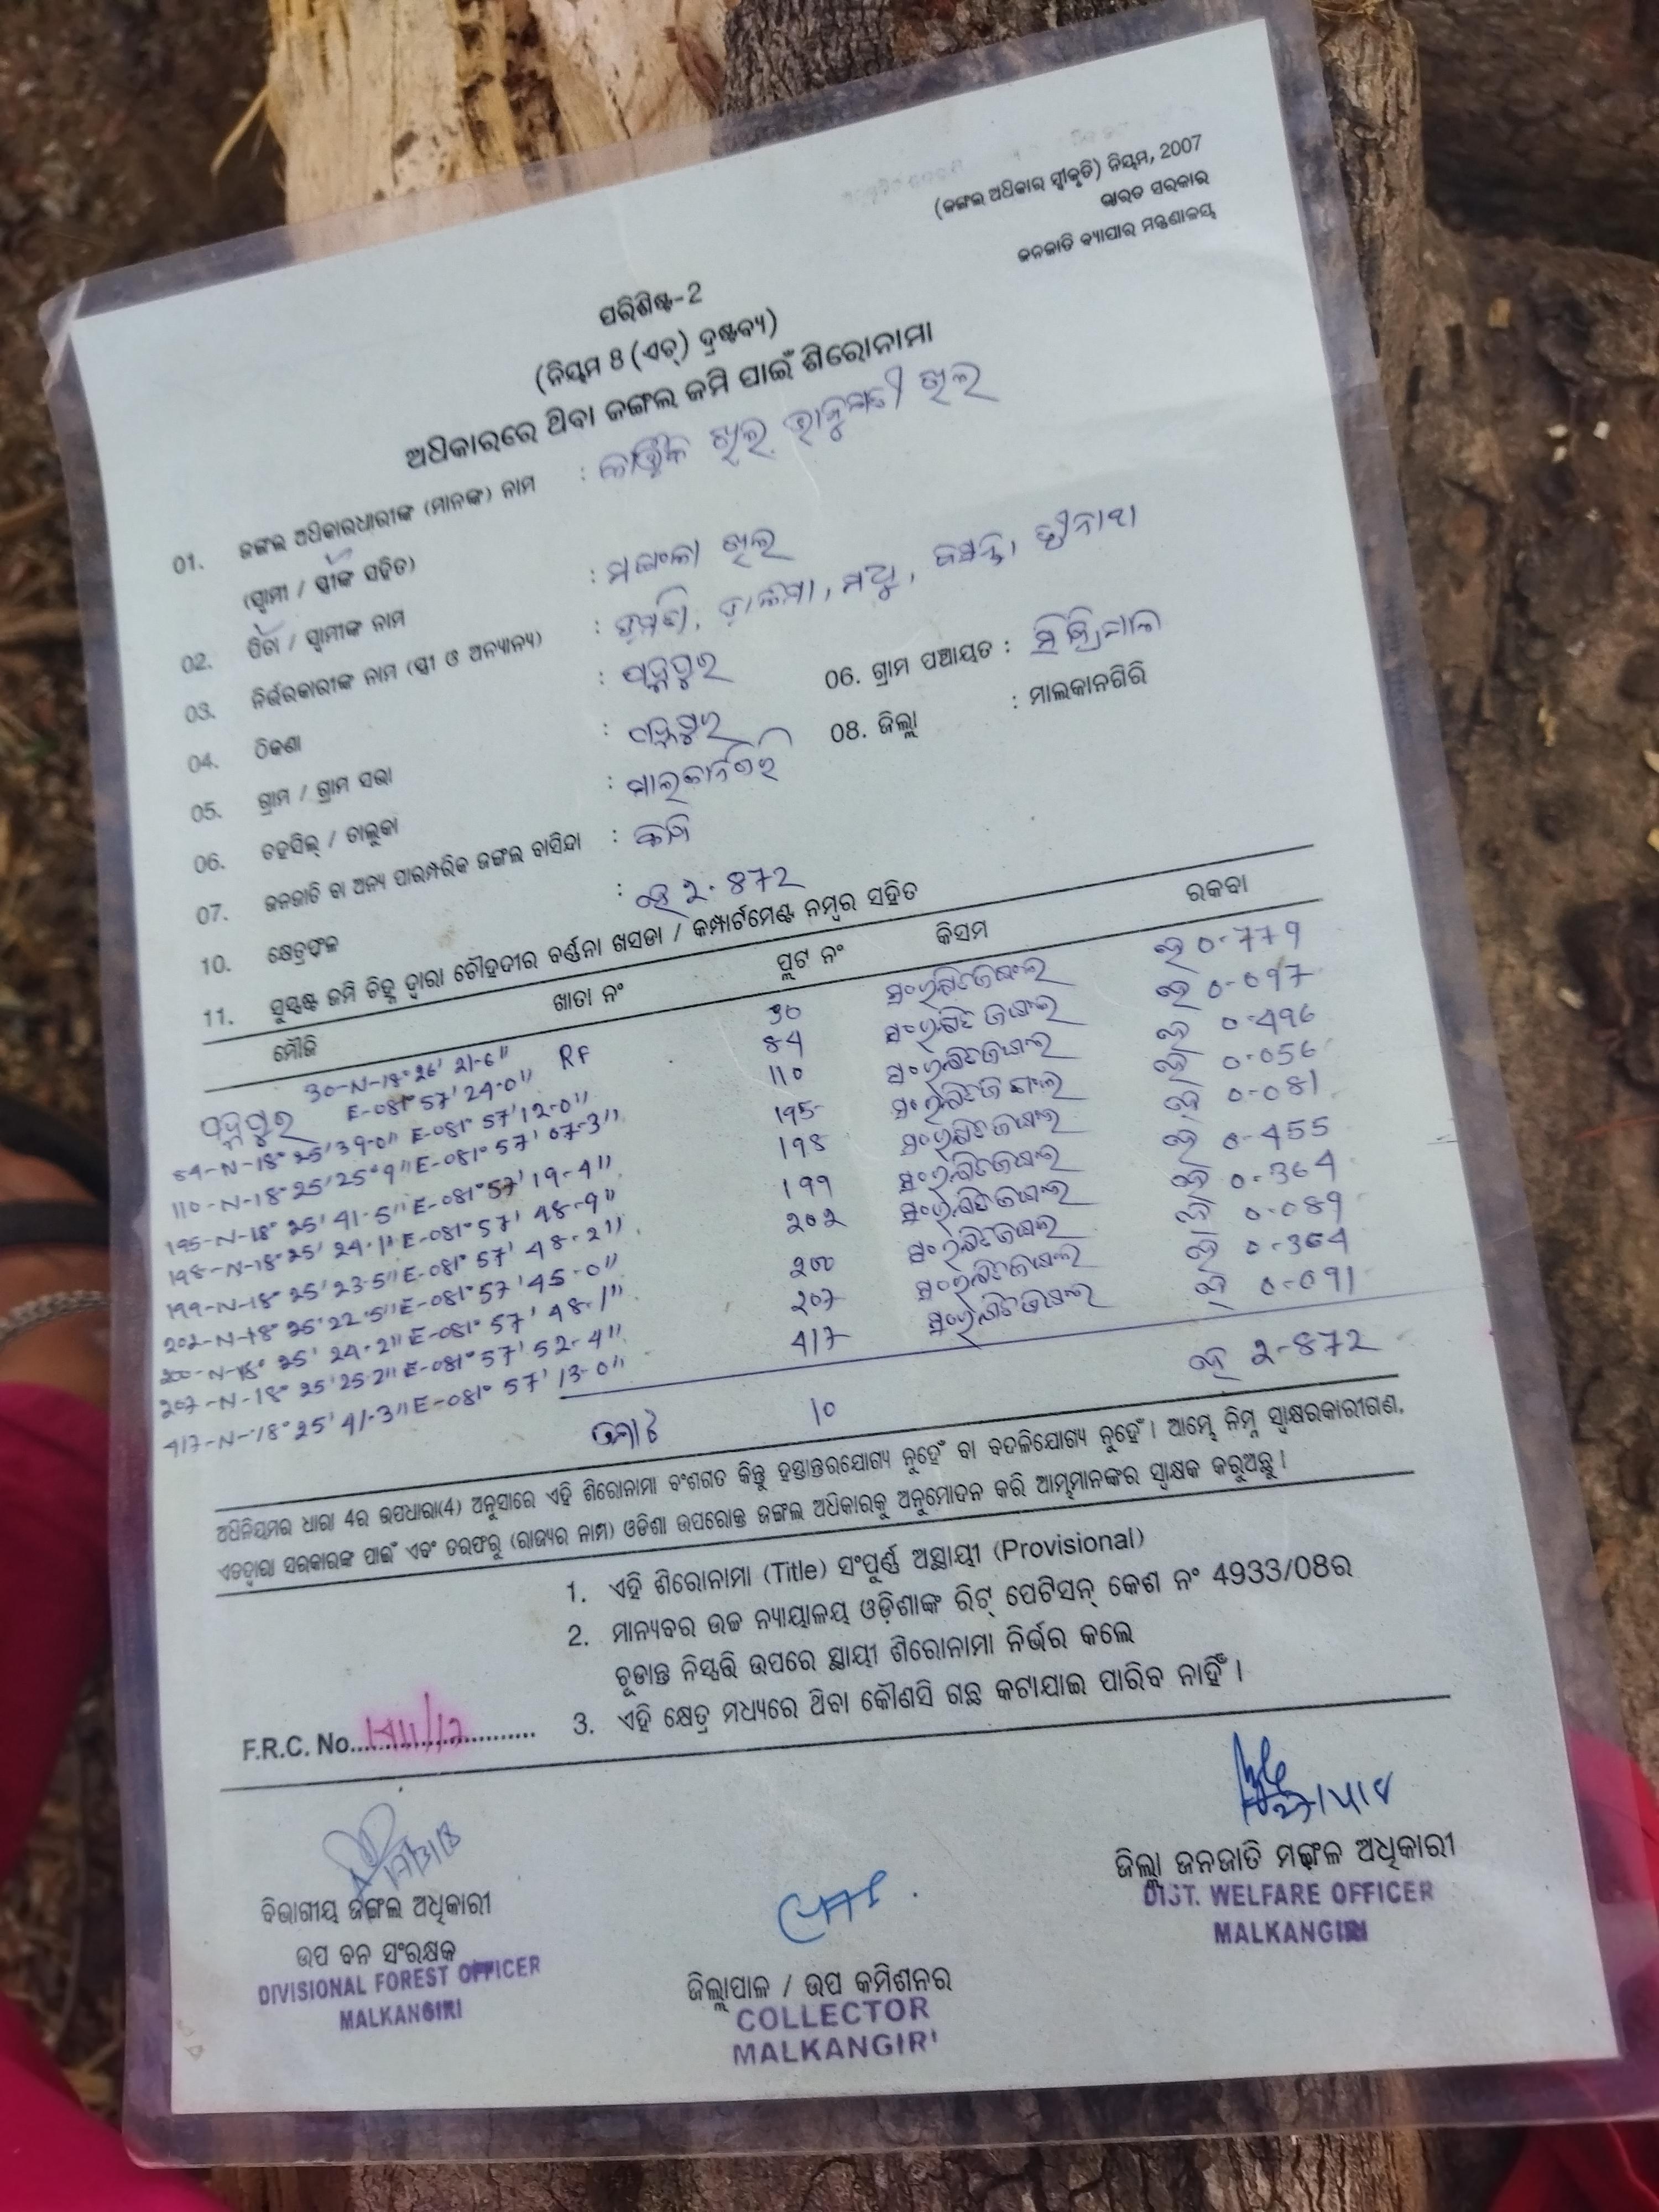 (ଜଙ୍ଗଲ ଅଧିକାର ସ୍ୱୀକୃତି) ନିୟମ, 2007
ଭାରତ ସରକାର
ଜନଜାତି ବ୍ୟାପାର ମନ୍ତ୍ରଣାଳୟ
ପରିଶିଷ୍ଟ-2
(ନିୟମ 8 (ଏଚ୍) ଦ୍ରଷ୍ଟବ୍ୟ)
ଅଧିକାରରେ ଥିବା ଜଙ୍ଗଲ ଜମି ପାଇଁ ଶିରୋନାମା
01. ଜଙ୍ଗଲ ଅଧିକାରଧାରୀଙ୍କ (ମାନଙ୍କ) ନାମ : କାର୍ତ୍ତିକ ଖିଲ, ଭାନୁମତୀ ଖିଲ
(ସ୍ୱାମୀ / ସ୍ତ୍ରୀଙ୍କ ସହିତ)
02. ପିତା / ସ୍ୱାମୀଙ୍କ ନାମ : ଖିଲ
03. ନିର୍ଭରକାରୀଙ୍କ ନାମ (ସ୍ତ୍ରୀ ଓ ଅନ୍ୟାନ୍ୟ) :
04. ଠିକଣା : ପଦ୍ମପୁର
05. ଗ୍ରାମ / ଗ୍ରାମ ସଭା : ପଦ୍ମପୁର 06. ଗ୍ରାମ ପଞ୍ଚାୟତ :
06. ତହସିଲ୍ / ତାଲୁକା : ମାଲକାନଗିରି 08. ଜିଲ୍ଲା : ମାଲକାନଗିରି
07. ଜନଜାତି ବା ଅନ୍ୟ ପାରମ୍ପରିକ ଜଙ୍ଗଲ ବାସିନ୍ଦା :
10. କ୍ଷେତ୍ରଫଳ : ହେ 2.872
11. ସୁସ୍ପଷ୍ଟ ଜମି ଚିହ୍ନ ଦ୍ୱାରା ଚୌହଦୀର ବର୍ଣ୍ଣନା ଖସଡା / କମ୍ପାର୍ଟମେଣ୍ଟ ନମ୍ବର ସହିତ
ମୌଜି ଖାତା ନଂ ପ୍ଲଟ ନଂ କିସମ ରକବା
30-N-18° 26' 21-6" RF 30 ସଂରକ୍ଷିତଜଙ୍ଗଲ ହେ 0-779
ପଦ୍ମପୁର E-081° 57' 24-0"
84-N-18° 25' 39-0" E-081° 57' 12-0" 84 ସଂରକ୍ଷିତ ଜଙ୍ଗଲ ହେ 0-097
110-N-18° 25' 25-9" E-081° 57' 07-3" 110 ସଂରକ୍ଷିତଜଙ୍ଗଲ ହେ 0-496
195-N-18° 25' 41-5" E-081° 57' 19-4" 195 ସଂରକ୍ଷିତ ଜଙ୍ଗଲ ହେ 0-056
198-N-18° 25' 24-1" E-081° 57' 48-9" 198 ସଂରକ୍ଷିତଜଙ୍ଗଲ ହେ 0-081
199-N-18° 25' 23-5" E-081° 57' 48-2" 199 ସଂରକ୍ଷିତଜଙ୍ଗଲ ହେ 0-455
202-N-18° 25' 22-5" E-081° 57' 45-0" 202 ସଂରକ୍ଷିତଜଙ୍ଗଲ ହେ 0-364
200-N-18° 25' 24-2" E-081° 57' 48-1" 200 ସଂରକ୍ଷିତଜଙ୍ଗଲ ହେ 0-089
207-N-18° 25' 25-2" E-081° 57' 52-4" 207 ସଂରକ୍ଷିତଜଙ୍ଗଲ ହେ 0-364
417-N-18° 25' 41-3" E-081° 57' 13-0" 417 ସଂରକ୍ଷିତଜଙ୍ଗଲ ହେ 0-091
ମୋଟ 10 ହେ 2-872
ଅଧିନିୟମର ଧାରା 4ର ଉପଧାରା(4) ଅନୁସାରେ ଏହି ଶିରୋନାମା ବଂଶଗତ କିନ୍ତୁ ହସ୍ତାନ୍ତରଯୋଗ୍ୟ ନୁହେଁ ବା ବଦଳିଯୋଗ୍ୟ ନୁହେଁ । ଆମ୍ଭେ ନିମ୍ନ ସ୍ୱାକ୍ଷରକାରୀଗଣ,
ଏତଦ୍ୱାରା ସରକାରଙ୍କ ପାଇଁ ଏବଂ ତରଫରୁ (ରାଜ୍ୟର ନାମ) ଓଡିଶା ଉପରୋକ୍ତ ଜଙ୍ଗଲ ଅଧିକାରକୁ ଅନୁମୋଦନ କରି ଆମ୍ଭମାନଙ୍କର ସ୍ୱାକ୍ଷକ କରୁଅଛୁ ।
1. ଏହି ଶିରୋନାମା (Title) ସଂପୂର୍ଣ୍ଣ ଅସ୍ଥାୟୀ (Provisional)
2. ମାନ୍ୟବର ଉଚ୍ଚ ନ୍ୟାୟାଳୟ ଓଡ଼ିଶାଙ୍କ ରିଟ୍ ପେଟିସନ୍ କେଶ ନଂ 4933/08ର
ଚୂଡାନ୍ତ ନିସ୍ପତ୍ତି ଉପରେ ସ୍ଥାୟୀ ଶିରୋନାମା ନିର୍ଭର କଲେ
3. ଏହି କ୍ଷେତ୍ର ମଧ୍ୟରେ ଥିବା କୌଣସି ଗଛ କଟାଯାଇ ପାରିବ ନାହିଁ ।
F.R.C. No
ବିଭାଗୀୟ ଜଙ୍ଗଲ ଅଧିକାରୀ
ଉପ ବନ ସଂରକ୍ଷକ
DIVISIONAL FOREST OFFICER
MALKANGIRI
ଜିଲ୍ଲାପାଳ / ଉପ କମିଶନର
COLLECTOR
MALKANGIRI
ଜିଲ୍ଲା ଜନଜାତି ମଙ୍ଗଳ ଅଧିକାରୀ
DIST. WELFARE OFFICER
MALKANGIRI